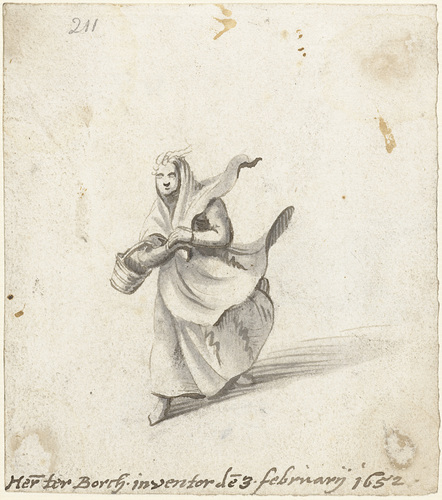 211
Her̄ ter Borch. inventor dē 3. februarij 1652.